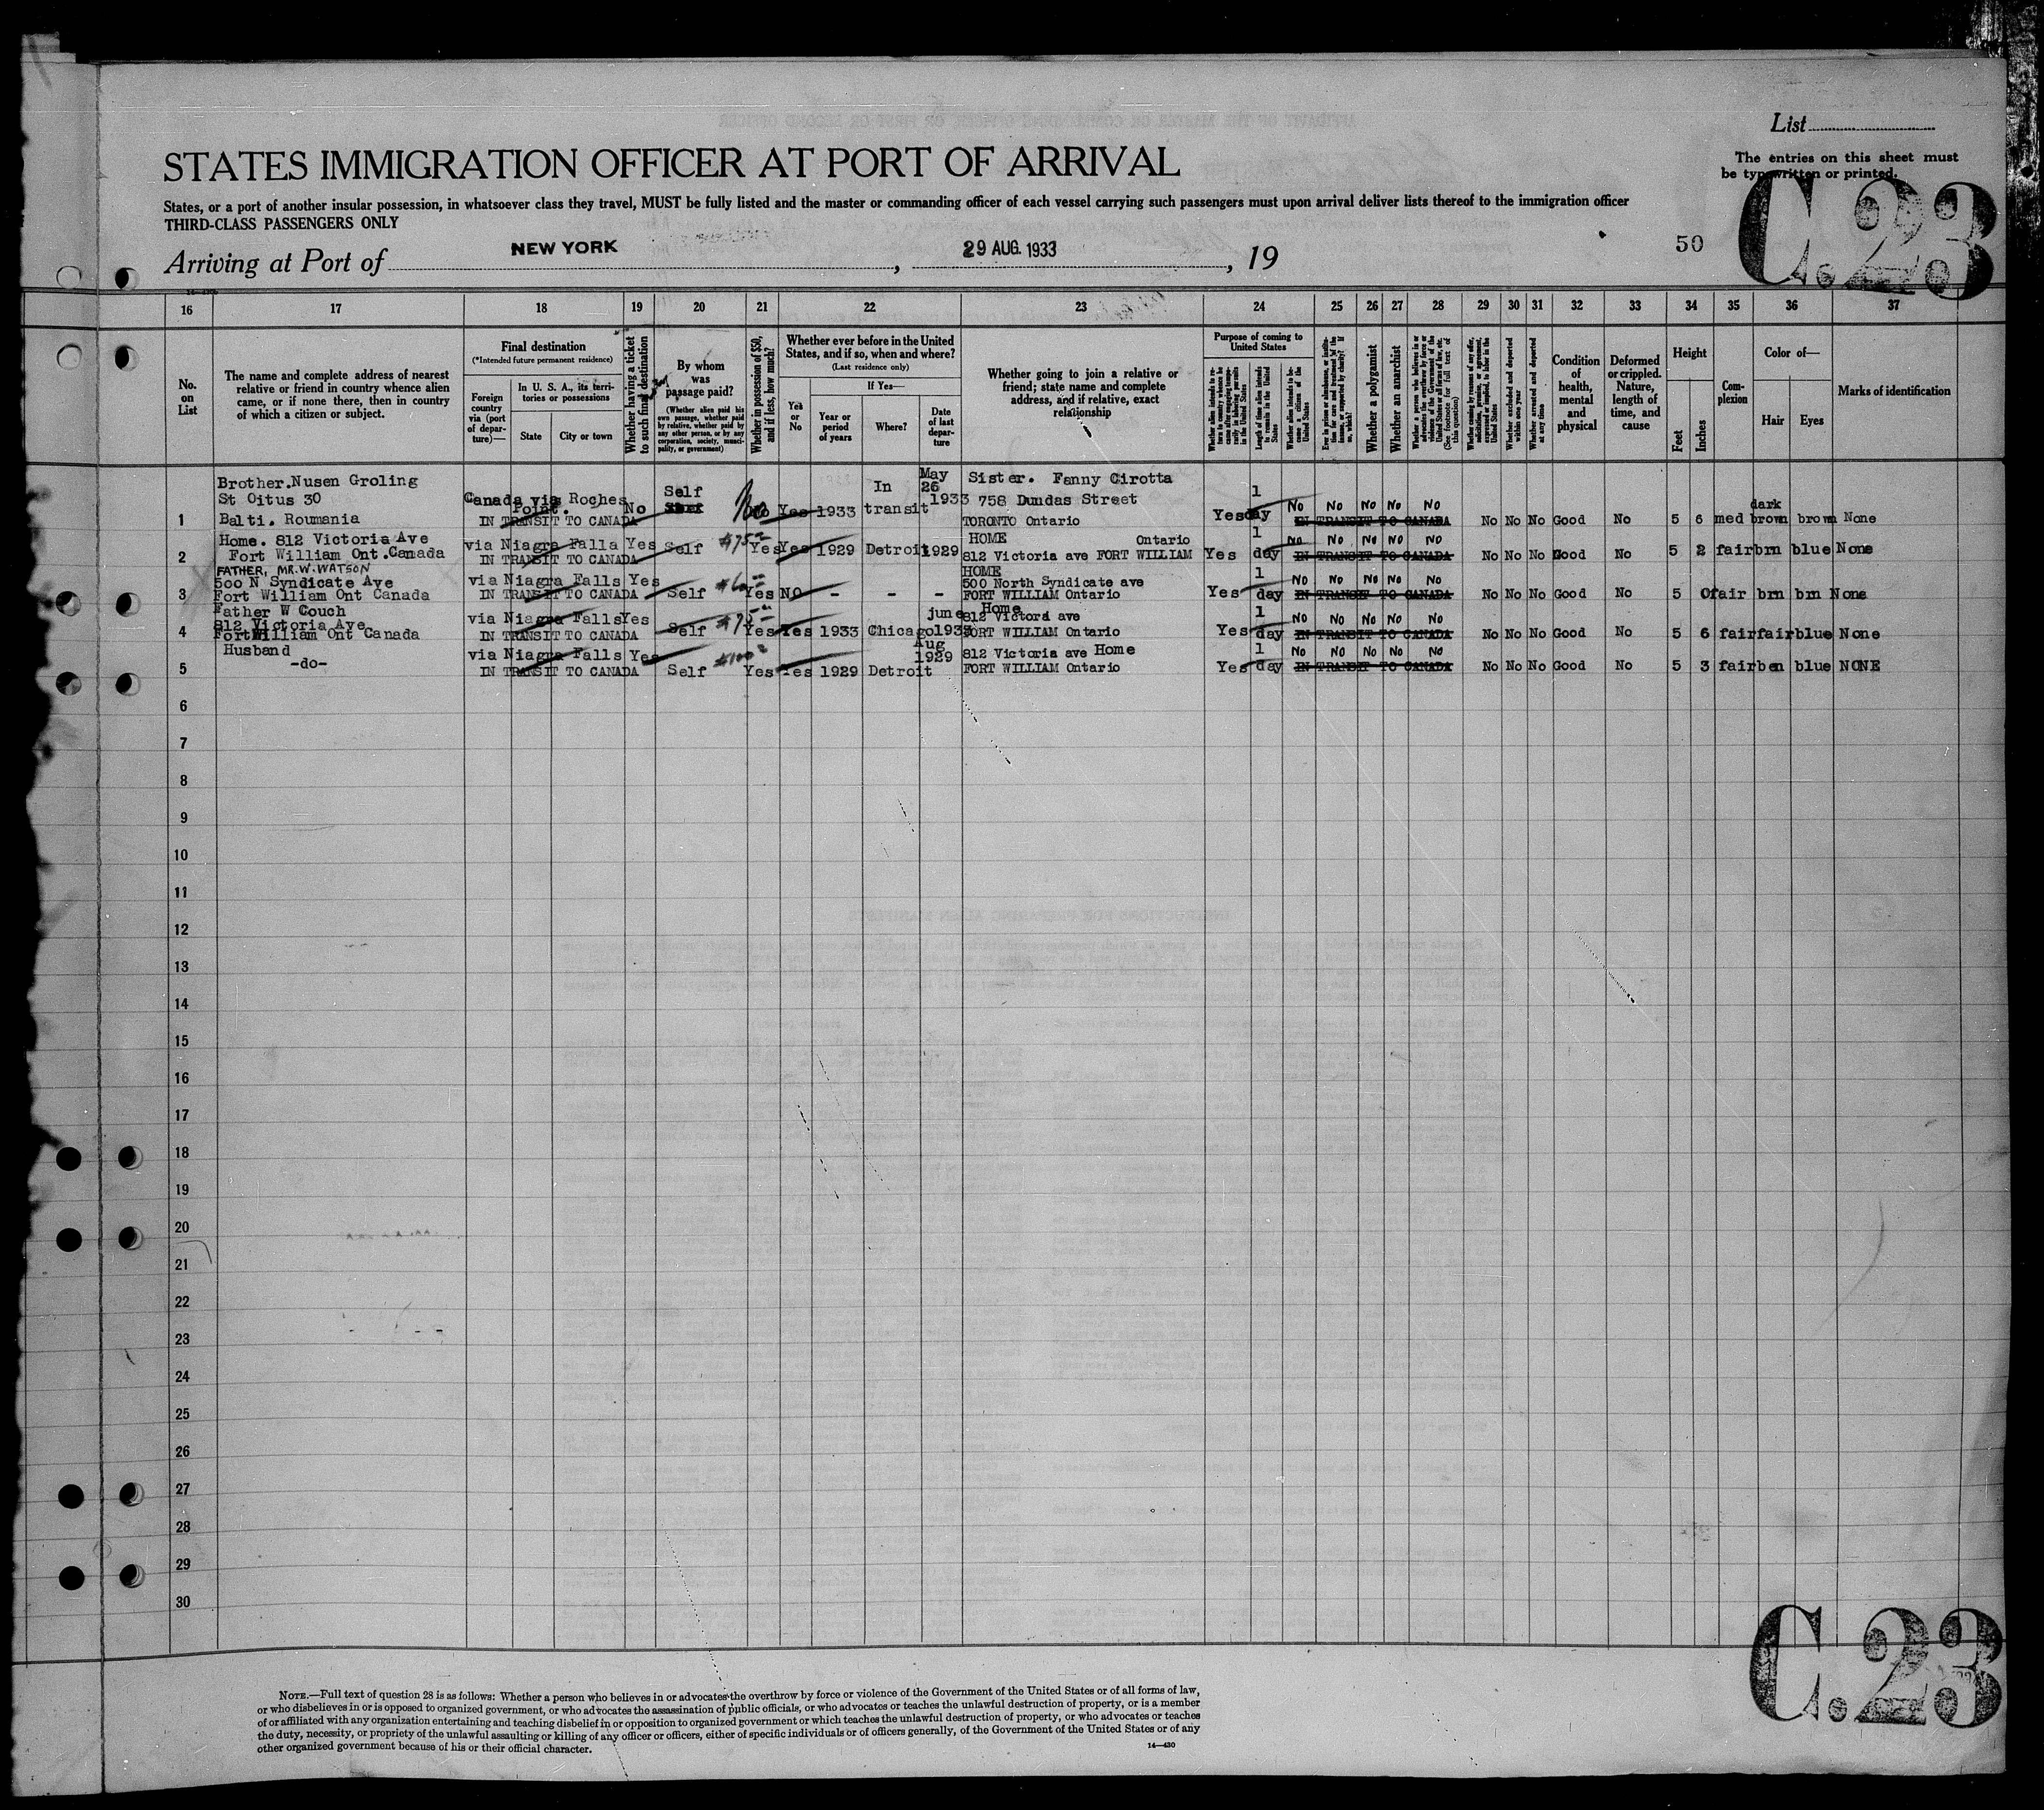 List
STATES IMMIGRATION OFFICER AT PORT OF ARRIVAL
The entries on this sheet must
be typewritten or printed.
States, or a port of another insular possession, in whatsoever class they travel, MUST be fully listed and the master or commanding officer of each vessel carrying such passengers must upon arrival deliver lists thereof to the immigration officer
THIRD-CLASS PASSENGERS ONLY
C.23
Arriving at Port of NEW YORK, 29 AUG. 1933, 19
50
16 17 18 19 20 21 22 23 24 25 26 27 28 29 30 31 32 33 34 35 36 37
No. on List
The name and complete address of nearest relative or friend in country whence alien came, or if none there, then in country of which a citizen or subject.
Final destination
(*Intended future permanent residence)
Foreign country via (port of departure)—
In U. S. A., its territories or possessions
State
City or town
Whether having a ticket to such final destination
By whom was passage paid?
(Whether alien paid his own passage, whether paid by relative, whether paid by any other person, or by any corporation, society, municipality, or government)
Whether in possession of $50, and if less, how much?
Whether ever before in the United States, and if so, when and where?
(Last residence only)
Yes or No
If Yes—
Year or period of years
Where?
Date of last departure
Whether going to join a relative or friend; state name and complete address, and if relative, exact relationship
Purpose of coming to United States
Length of time alien intends to remain in the United States
Whether alien intends to become a citizen of the United States
Whether a polygamist
Whether an anarchist
(See footnote for full text of this question)
Whether excluded and deported within one year
Whether arrested and deported at any time
Condition of health, mental and physical
Deformed or crippled. Nature, length of time, and cause
Height
Feet
Inches
Complexion
Color of—
Hair
Eyes
Marks of identification
Brother.Nusen Groling
St Oitus 30
1 Balti. Roumania
Canada via Roches Point.
IN TRANSIT TO CANADA
No Self No Yes 1933 In transit May 26 1933
Sister. Fanny Cirotta
758 Dundas Street
TORONTO Ontario
Yes 1 day No No No No No
IN TRANSIT TO CANADA
No No No Good No 5 6 med dark brown brown None
Home. 812 Victoria Ave
2 Fort William Ont.Canada
via Niagra Falla Yes
IN TRANSIT TO CANADA
Self $75 Yes Yes 1929 Detroit 1929
HOME Ontario
812 Victoria ave FORT WILLIAM
Yes 1 day No No No No No
IN TRANSIT TO CANADA
No No No Good No 5 2 fair brn blue None
FATHER, MR.W.WATSON
500 N Syndicate Ave
3 Fort William Ont Canada
via Niagra Falls Yes
IN TRANSIT TO CANADA
Self $60 Yes No - - -
HOME
500 North Syndicate ave
FORT WILLIAM Ontario
Yes 1 day No No No No No
IN TRANSIT TO CANADA
No No No Good No 5 0 fair brn brn None
Father W Couch
812 Victoria Ave
4 Fort William Ont Canada
via Niagra Falls Yes
IN TRANSIT TO CANADA
Self $75 Yes Yes 1933 Chicago june 1933
Home
812 Victora ave
FORT WILLIAM Ontario
Yes 1 day No No No No No
IN TRANSIT TO CANADA
No No No Good No 5 6 fair fair blue None
Husband
5 -do-
via Niagra Falls Yes
IN TRANSIT TO CANADA
Self $100 Yes Yes 1929 Detroit Aug 1929
812 Victoria ave Home
FORT WILLIAM Ontario
Yes 1 day No No No No No
IN TRANSIT TO CANADA
No No No Good No 5 3 fair ben blue NONE
6
7
8
9
10
11
12
13
14
15
16
17
18
19
20
21
22
23
24
25
26
27
28
29
30
C.23
NOTE.—Full text of question 28 is as follows: Whether a person who believes in or advocates the overthrow by force or violence of the Government of the United States or of all forms of law,
or who disbelieves in or is opposed to organized government, or who advocates the assassination of public officials, or who advocates or teaches the unlawful destruction of property, or is a member
of or affiliated with any organization entertaining and teaching disbelief in or opposition to organized government or which teaches the unlawful destruction of property, or who advocates or teaches
the duty, necessity, or propriety of the unlawful assaulting or killing of any officer or officers, either of specific individuals or of officers generally, of the Government of the United States or of any
other organized government because of his or their official character.
14—430